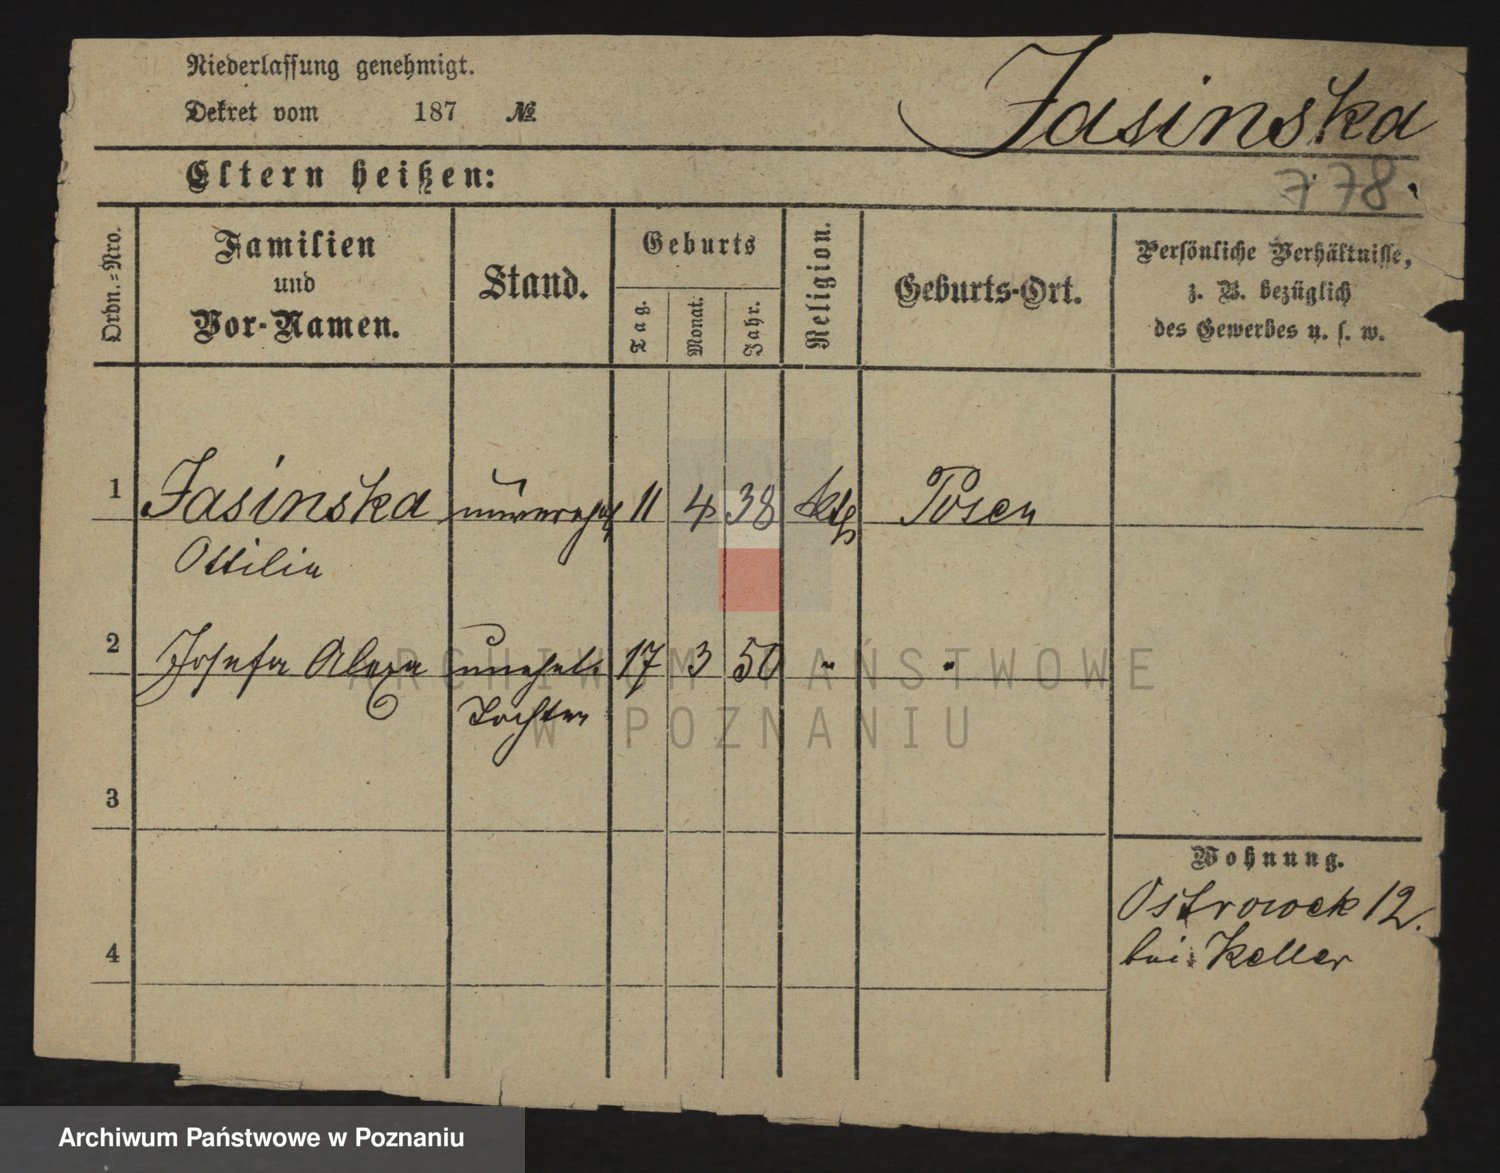 Niederlassung genehmigt.
Dekret vom 187 №
Jasinska
Eltern heißen:
778.
Ordn.-Nro.
Familien
und
Vor-Namen.
Stand.
Geburts
Tag.
Monat.
Jahr.
Religion.
Geburts-Ort.
Persönliche Verhältnisse,
z. B. bezüglich
des Gewerbes u. s. w.
1 Jasinska unverehel 11 4 38 kth Posen
Ottilie
2 Josefa 17 3 50 " "
Tochter
ARCHIWUM PAŃSTWOWE
W POZNANIU
3
Wohnung.
Ostrowek 12.
bei Keller
4
Archiwum Państwowe w Poznaniu